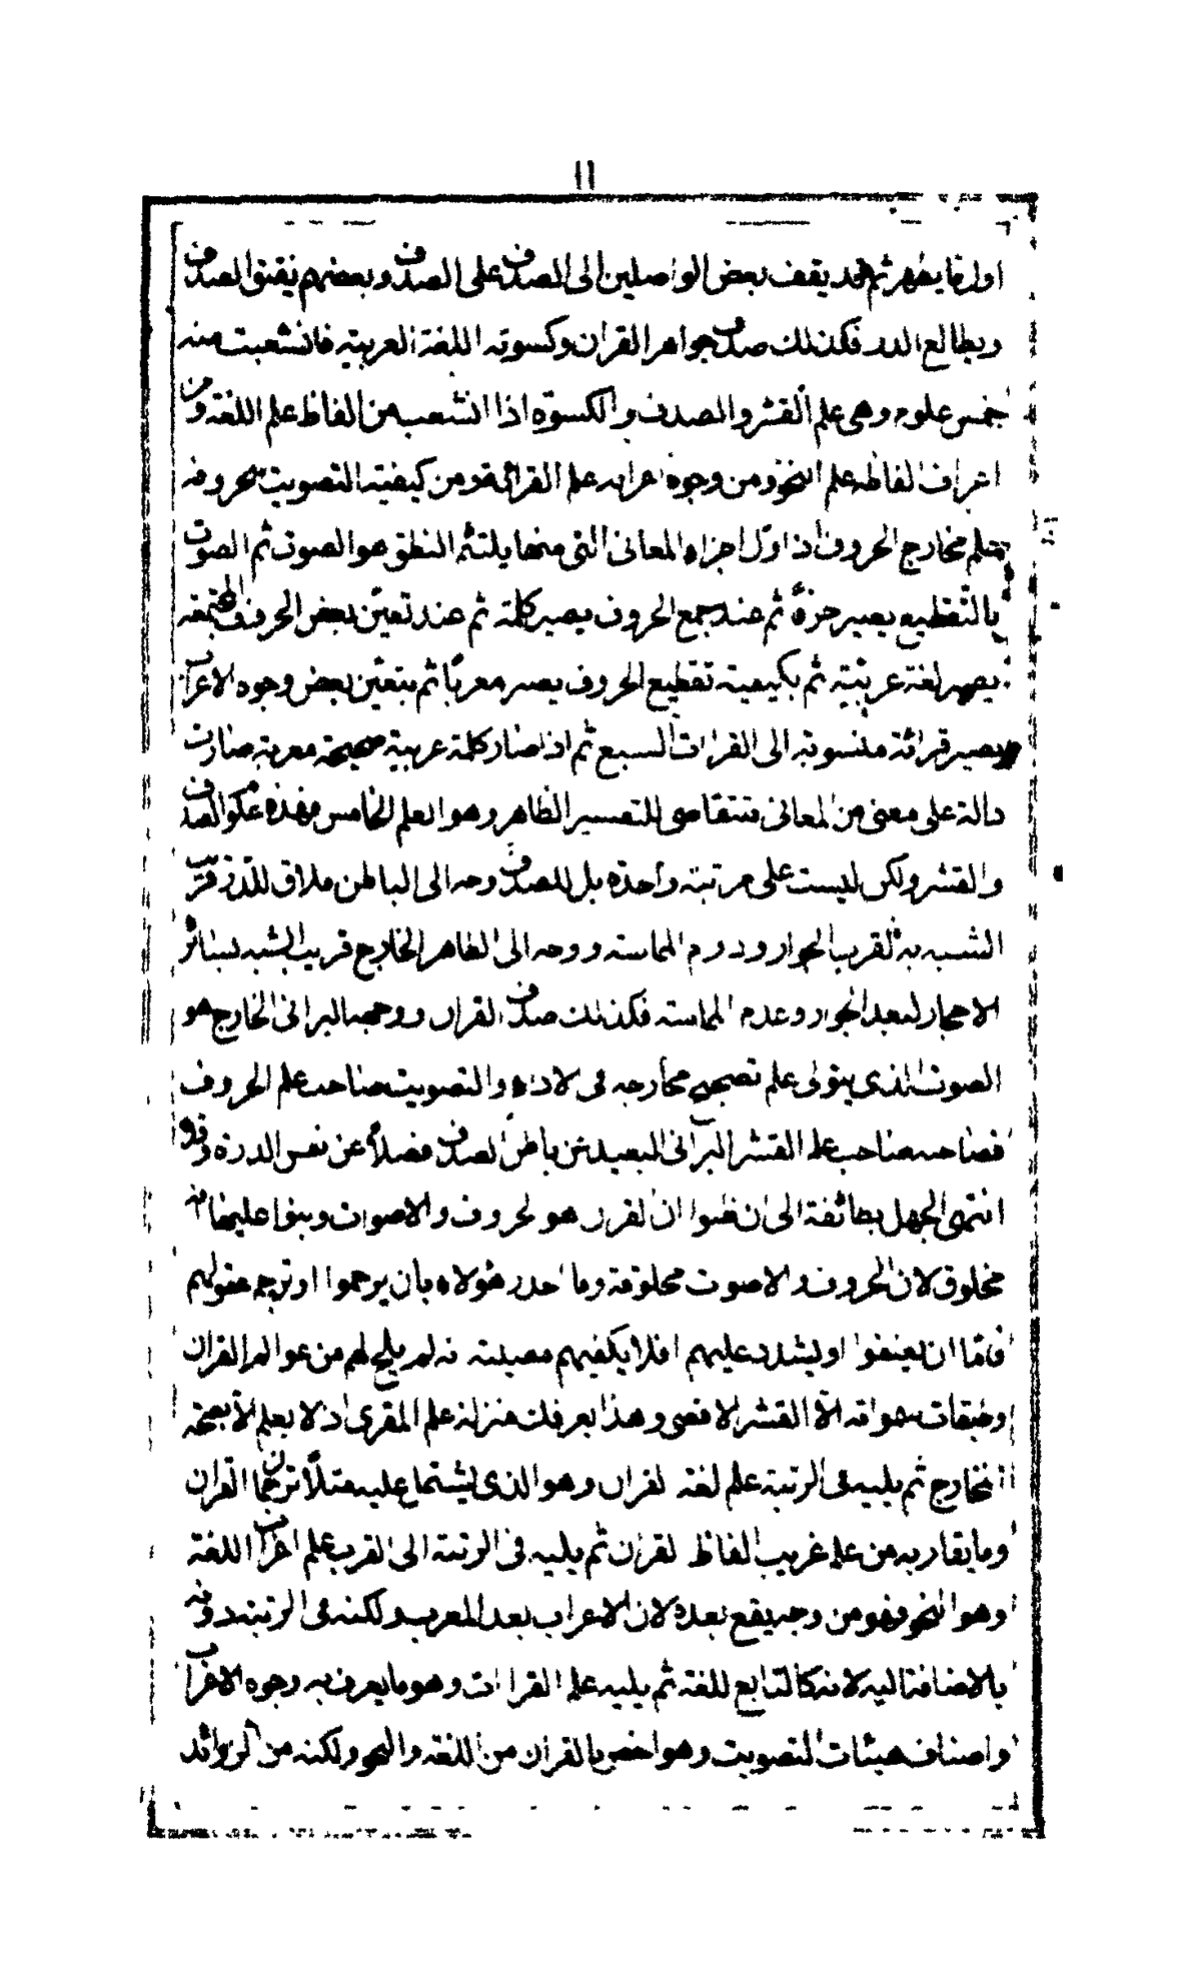 ١١
اول ما يظهر ثم قد يقف بعض الواصلين الى الصدف على الصدف وبعضهم يفتق الصدف
ويطالع الدر فكذلك صدف جواهر القران وكسوته اللغة العربية فانشعبت منه
خمس علوم وهى علم القشر والصدف والكسوة اذا انشعب من الفاظه علم اللغة ومن
اعراب الفاظه علم النحو ومن وجوه اعرابه علم القرائة ومن كيفية التصويت بحروفه
علم مخارج الحروف اذ اول اجزاء المعانى التى منها يلتئم النطق هو الصوت ثم الصوت
بالتقطيع يصير حرفا ثم عند جمع الحروف يصير كلمة ثم عند تعين بعض الحروف المجتمعة
يصير لغة عربية ثم بكيفية تقطيع الحروف يصير معربا ثم بتعين بعض وجوه الاعراب
يصير قرائة منسوبة الى القراات السبع ثم اذا صار كلمة عربية صحيحة معربة صارت
دالة على معنى من المعانى فتتقاضى للتفسير الظاهر وهو العلم الخامس فهذه علوم الصدف
والقشر ولكن ليست على مرتبة واحدة بل للصدف وجه الى الباطن ملاق للدر قريب
الشبه به لقرب الجوار ودوام المماسة ووجه الى الظاهر الخارج قريب الشبه بسائر
الاحجار لبعد الجوار وعدم المماسة فكذلك صدف القران ووجهه البرانى الخارج هو
الصوت الذى يتولى علم تصحيح مخارجه فى الاداء والتصويت صاحب علم الحروف
فصاحبه صاحب علم القشر البرانى البعيد عن باطن الصدف فضلا عن نفس الدرة وقد
انتهى الجهل بطائفة الى ان ظنوا ان القران هو الحروف والاصوات وبنوا عليها انه
مخلوق لان الحروف والاصوات مخلوقة وما اجدر هؤلاء بان يرجموا او ترجم عقولهم
فاما ان يعنفوا او يشدد عليهم افلا يكفيهم مصيبة انه لم يلح لهم من عوالم القران
وطبقات سمواته الا القشر الاقصى وهذا يعرفك منزلة علم المقرى اذ لا يعلم الا بصحة
المخارج ثم يليه فى الرتبة علم لغة القران وهو الذى يشتمل عليه مثلا ترجمان القران
وما يقاربه من علم غريب الفاظ القران ثم يليه فى الرتبة الى القرب علم اعراب اللغة
وهو النحو فهو من وجه يقع بعده لان الاعراب بعد المعرب ولكنه فى الرتبة دونه
بالاضافة اليه لانه كالتابع للغة ثم يليه علم القراات وهو ما يعرف به وجوه الاعراب
واصناف هيئات التصويت وهو اخص بالقران من اللغة والنحو ولكنه من الزوائد